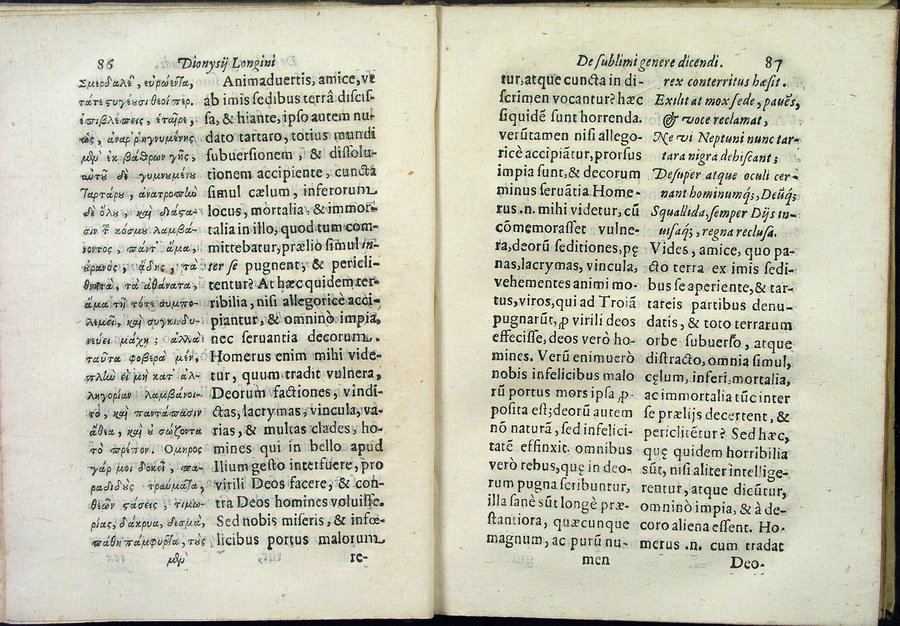 86 Dionysij Longini
Σμερδαλέ', εὐρώεντα,
τάτε στυγέουσι θεοί περ.
ἐπιβλέπεις, ἑταῖρε,
ὡς, ἀναῤῥηγνυμένης
μὲν ἐκ βάθρων γῆς,
αὐτοῦ δὲ γυμνουμένου
Ταρτάρου, ἀνατροπὴν
δὲ ὅλου, καὶ διάστα-
σιν τοῦ κόσμου λαμβά-
νοντος, πάντ' ἅμα,
οὐρανὸς, ᾅδης, τὰ
θνητὰ, τὰ ἀθάνατα,
ἅμα τῇ τότε συμπο-
λεμεῖ, καὶ συγκινδυ-
νεύει μάχῃ; ἀλλὰ
ταῦτα φοβερὰ μὲν,
πλὴν εἰ μὴ κατ' ἀλ-
ληγορίαν λαμβάνοι-
το, καὶ παντάπασιν
ἄθεα, καὶ οὐ σώζοντα
τὸ πρέπον. Ὅμηρος
γάρ μοι δοκεῖ, πα-
ραδιδοὺς τραύματα,
θεῶν στάσεις, τιμω-
ρίας, δάκρυα, δεσμὰ,
πάθη πάμφυρτα, τοὺς
μὲν
Animaduertis, amice, vt
ab imis sedibus terrâ discis-
sa, & hiante, ipso autem nu-
dato tartaro, totius mundi
subuersionem, & dissolu-
tionem accipiente, cunctâ
simul cælum, inferorum
locus, mortalia, & immor-
talia in illo, quod tum com-
mittebatur, prælio simul in-
ter se pugnent, & pericli-
tentur? At hæc quidem ter-
ribilia, nisi allegoricè acci-
piantur, & omninò impia,
nec seruantia decorum.
Homerus enim mihi vide-
tur, quum tradit vulnera,
Deorum factiones, vindi-
ctas, lacrymas, vincula, va-
rias, & multas clades, ho-
mines qui in bello apud
Ilium gesto interfuere, pro
virili Deos facere, & con-
tra Deos homines voluisse.
Sed nobis miseris, & infœ-
licibus portus malorum
re-
De sublimi genere dicendi. 87
tur, atque cuncta in di-
scrimen vocantur? hæc
siquidē sunt horrenda.
verūtamen nisi allego-
ricè accipiātur, prorsus
impia sunt, & decorum
minus seruātia Home-
rus .n. mihi videtur, cū
cōmemorasset vulne-
ra, deorū seditiones, pę
nas, lacrymas, vincula,
vehementes animi mo-
tus, viros, qui ad Troiā
pugnarūt, ꝓ virili deos
effecisse, deos verò ho-
mines. Verū enimuerò
nobis infelicibus malo
rū portus mors ipsa ꝓ-
posita est; deorū autem
nō naturā, sed infelici-
tatē effinxit. omnibus
verò rebus, quę in deo-
rum pugna scribuntur,
illa sanè sūt longè præ-
stantiora, quæcunque
magnum, ac purū nu-
men
rex conterritus hæsit.
Exilit at mox sede, pauēs,
& voce reclamat,
Ne vi Neptuni nunc tar-
tara nigra dehiscant;
Desuper atque oculi cer-
nant hominumq;, Deūq;
Squallida, semper Dijs in-
uisaq;, regna reclusa.
Vides, amice, quo pa-
cto terra ex imis sedi-
bus se aperiente, & tar-
tareis partibus denu-
datis, & toto terrarum
orbe subuerso, atque
distracto, omnia simul,
cęlum, inferi, mortalia,
ac immortalia tūc inter
se prælijs decertent, &
periclitētur? Sed hæc,
quę quidem horribilia
sūt, nisi aliter intellige-
rentur, atque dicūtur,
omninò impia, & à de-
coro aliena essent. Ho-
merus .n. cum tradat
Deo-